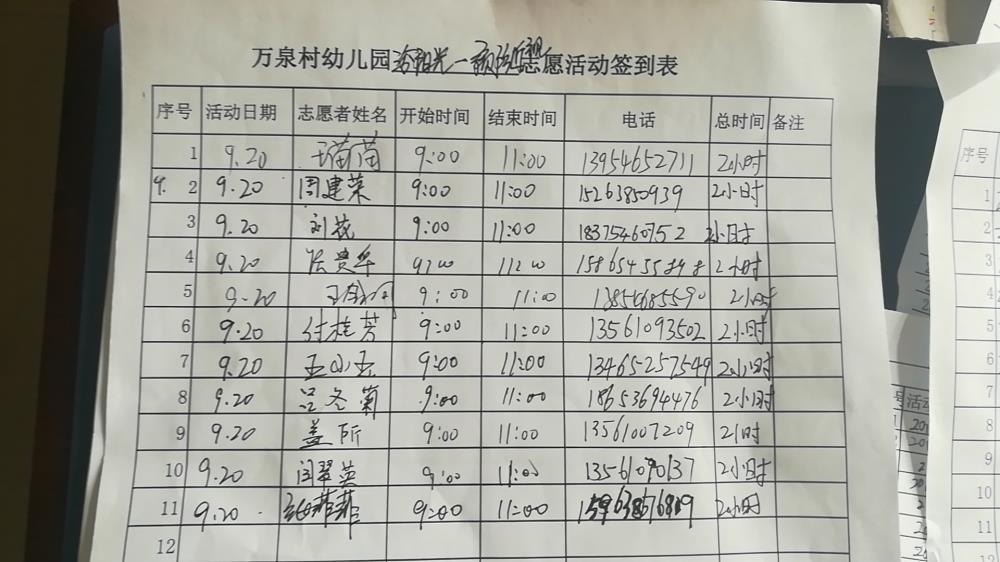 万泉村幼儿园 志愿活动签到表
序号 活动日期 志愿者姓名 开始时间 结束时间 电话 总时间 备注
1 9.20 王苗苗 9:00 11:00 13954652711 2小时
9. 2 9.20 周建荣 9:00 11:00 15263850939 2小时
3 9.20 刘花 9:00 11:00 18375460752 2小时
4 9.20 张贵华 9:00 11:00 2小时
5 9.20 9:00 11:00 13854685590 2小时
6 9.20 付桂芳 9:00 11:00 13561093502 2小时
7 9.20 王小玉 9:00 11:00 13465257549 2小时
8 9.20 吕冬菊 9:00 11:00 18653694476 2小时
9 9.20 盖所 9:00 11:00 13561007209 2小时
10 9.20 闫翠英 9:00 11:00 13561090137 2小时
11 9.20 张菲菲 9:00 11:00 2小时
12
序号
1
2
3
4
5
6
7
8
9
10
11
12
号 活动